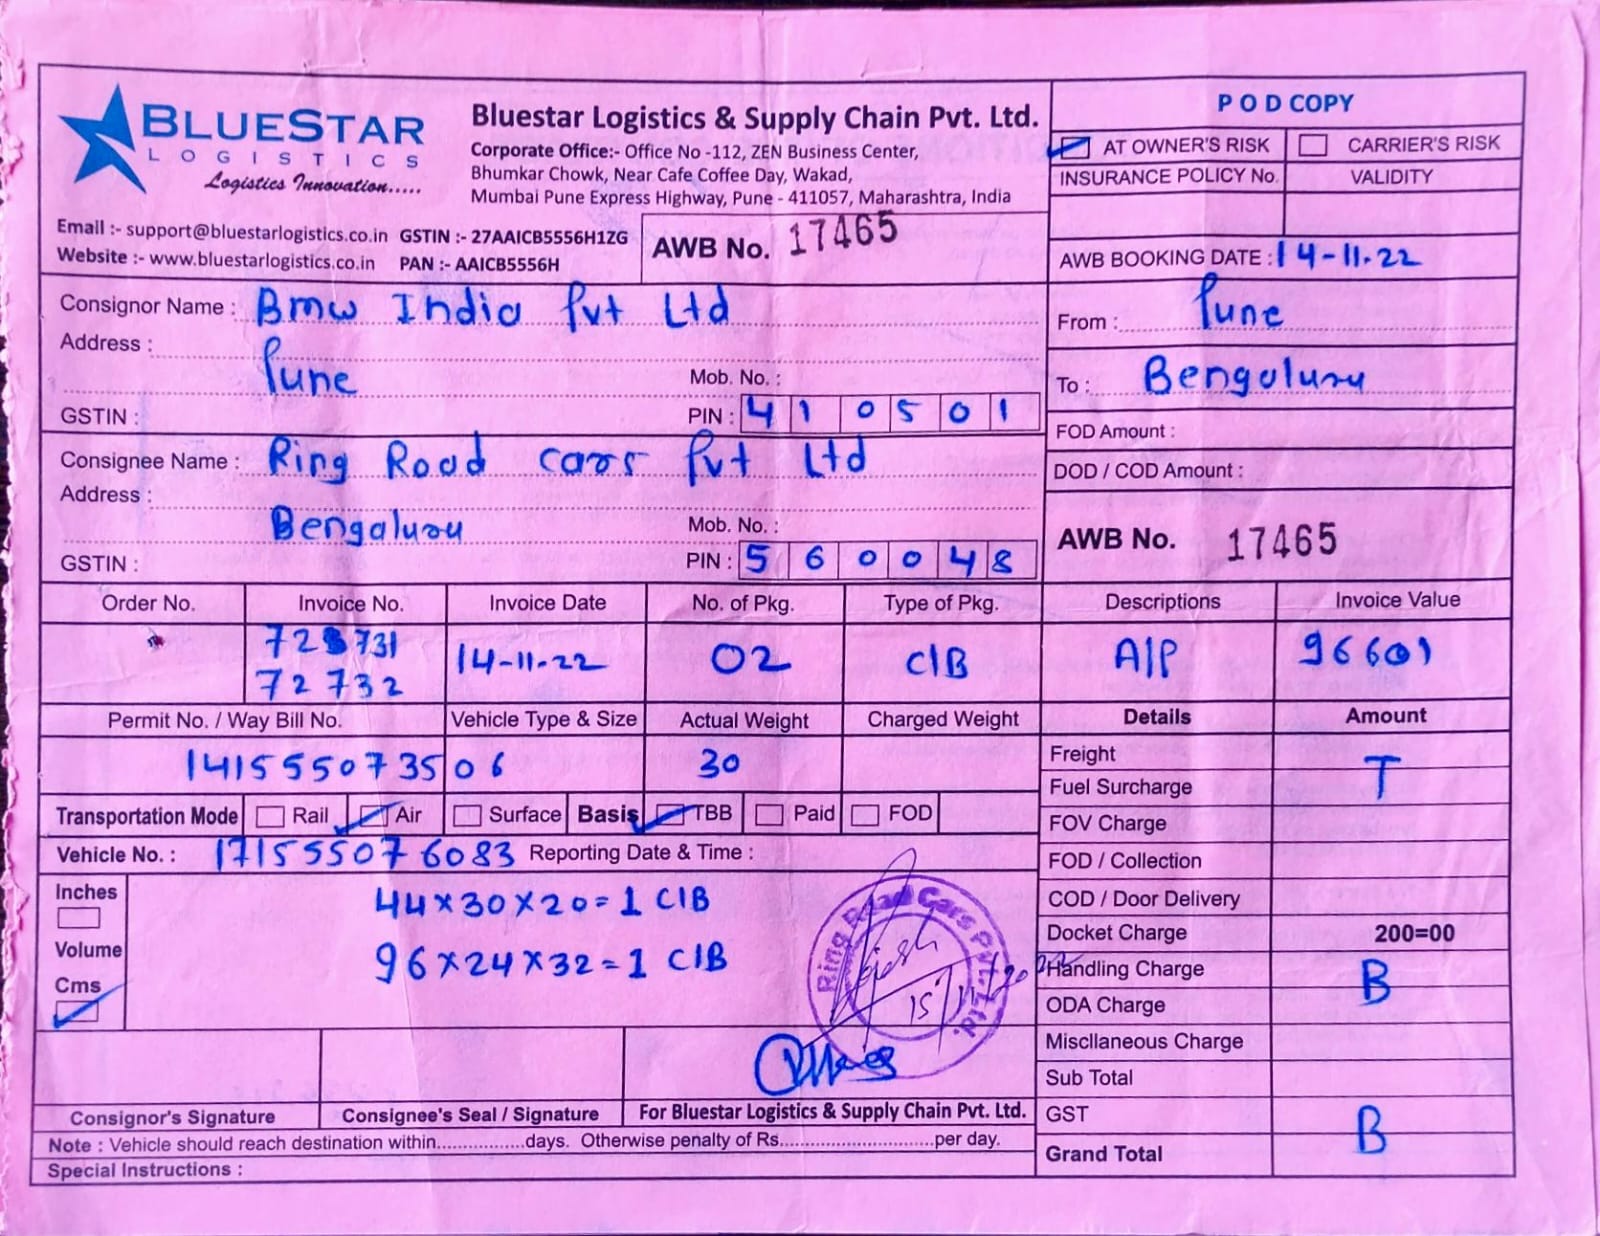 BLUESTAR
LOGISTICS
Logistics Innovation.....
Bluestar Logistics & Supply Chain Pvt. Ltd.
Corporate Office:- Office No -112, ZEN Business Center,
Bhumkar Chowk, Near Cafe Coffee Day, Wakad,
Mumbai Pune Express Highway, Pune - 411057, Maharashtra, India
Email :- support@bluestarlogistics.co.in GSTIN :- 27AAICB5556H1ZG
Website :- www.bluestarlogistics.co.in PAN :- AAICB5556H
AWB No. 17465
POD COPY
AT OWNER'S RISK CARRIER'S RISK
INSURANCE POLICY No. VALIDITY
AWB BOOKING DATE : 14-11-22
Consignor Name : Bmw India Pvt Ltd
Address :
Pune
Mob. No. :
GSTIN : PIN : 410501
From : Pune
To : Bengaluru
FOD Amount :
DOD / COD Amount :
Consignee Name : Ring Road cars Pvt Ltd
Address :
Bengaluru
Mob. No. :
GSTIN : PIN : 560048
AWB No. 17465
Order No. Invoice No. Invoice Date No. of Pkg. Type of Pkg. Descriptions Invoice Value
14-11-22 02 C/B A/P 96601
72732
Permit No. / Way Bill No. Vehicle Type & Size Actual Weight Charged Weight Details Amount
141555073506 30
Freight
T
Fuel Surcharge
Transportation Mode Rail Air Surface Basis TBB Paid FOD
FOV Charge
Vehicle No. : 171555076083 Reporting Date & Time :
FOD / Collection
Inches
Volume
Cms
44x30x20=1 C/B
96x24x32=1 C/B
Ring Road Cars Pvt. Ltd.
COD / Door Delivery
Docket Charge 200=00
Handling Charge
B
ODA Charge
Miscllaneous Charge
Sub Total
GST
B
Grand Total
Consignor's Signature Consignee's Seal / Signature For Bluestar Logistics & Supply Chain Pvt. Ltd.
Note : Vehicle should reach destination within................days. Otherwise penalty of Rs..............................per day.
Special Instructions :